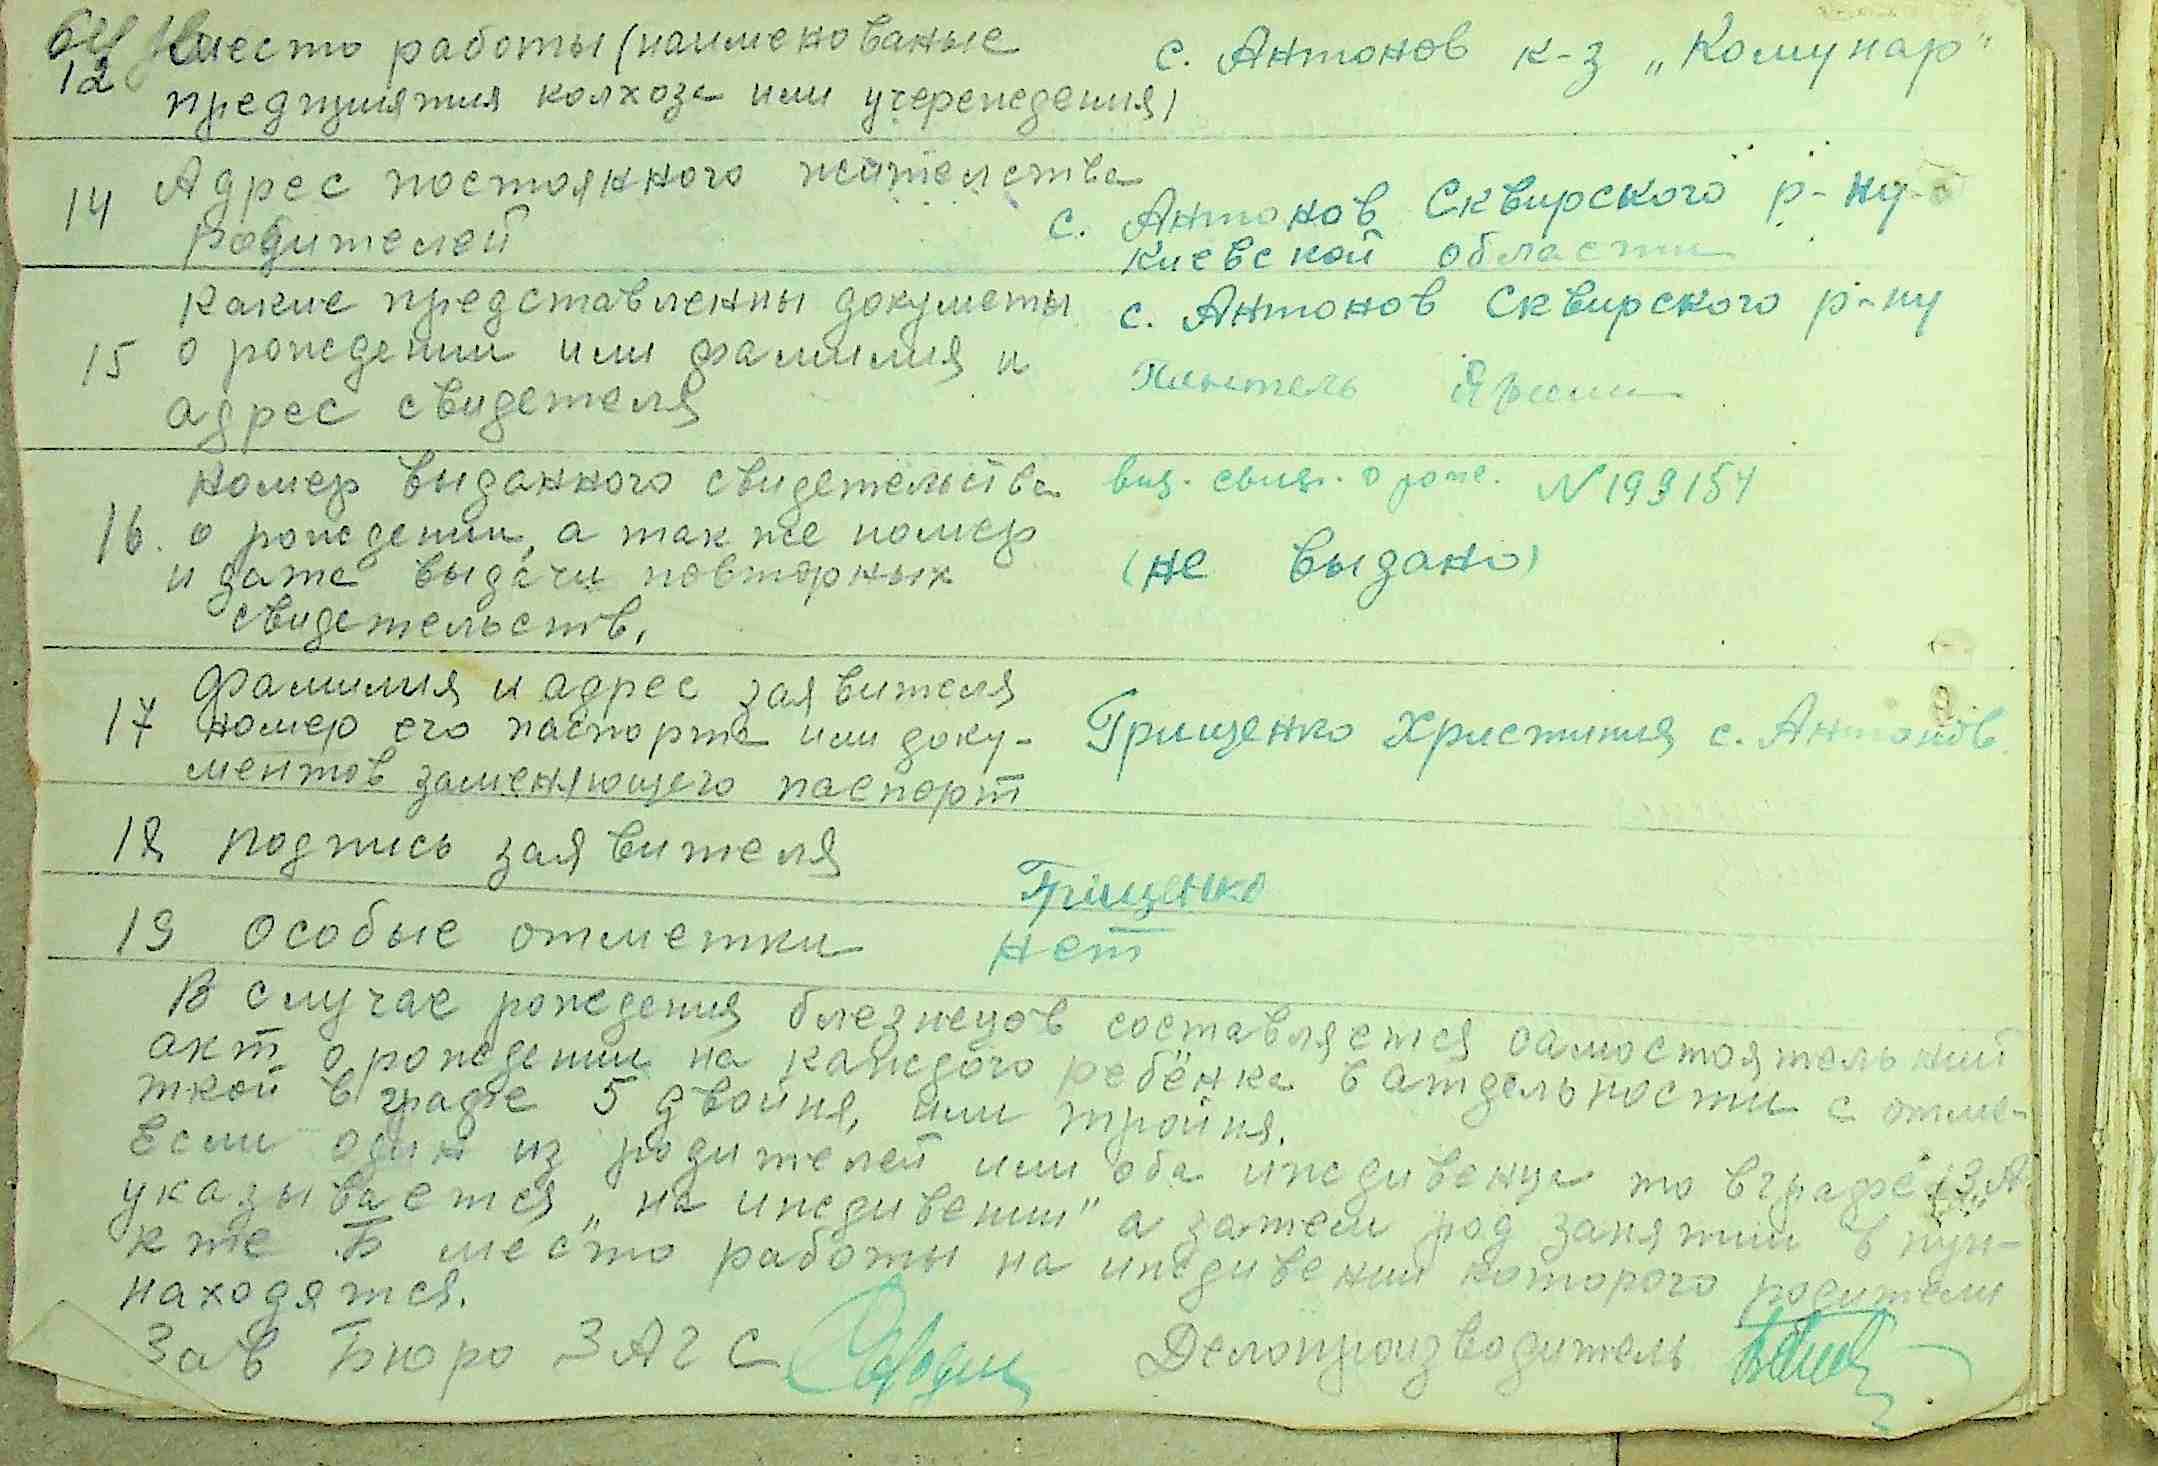 12 место работы (наименованые с. Антонов к-з „Комунар"
предприятия колхоза или учереждения)
14 Адрес постоянного жительства
родителей с. Антонов Сквирского р-ну
Киевской области
какие представленны документы с. Антонов Сквирского р-ну
15 о рождении или фамилия и
адрес свидетеля
номер выданного свидетельства выд. свид. о рож. N 199154
16. о рождении, а так же номер
и дата выдачи повторных (не выдано)
свидетельств,
фамилия и адрес заявителя
17 номер его паспорта или доку- Грищенко Христиния с. Антонов
ментов заменяющего паспорт
18 подпись заявителя
Грищенко
19 особые отметки нет
В случае рождения близнецов составляется самостоятельний
акт о рождении на каждого ребёнка в атдельности с отме-
ткой в графе 5 двойня, или тройня.
Если один из родителей или оба иждивенца то в графе 13 А
указывается „на иждивении" а затем род занятии в пун-
кте Б место работы на иждивении которого родители
находятся.
Зав Бюро ЗАГС Делопроизводитель